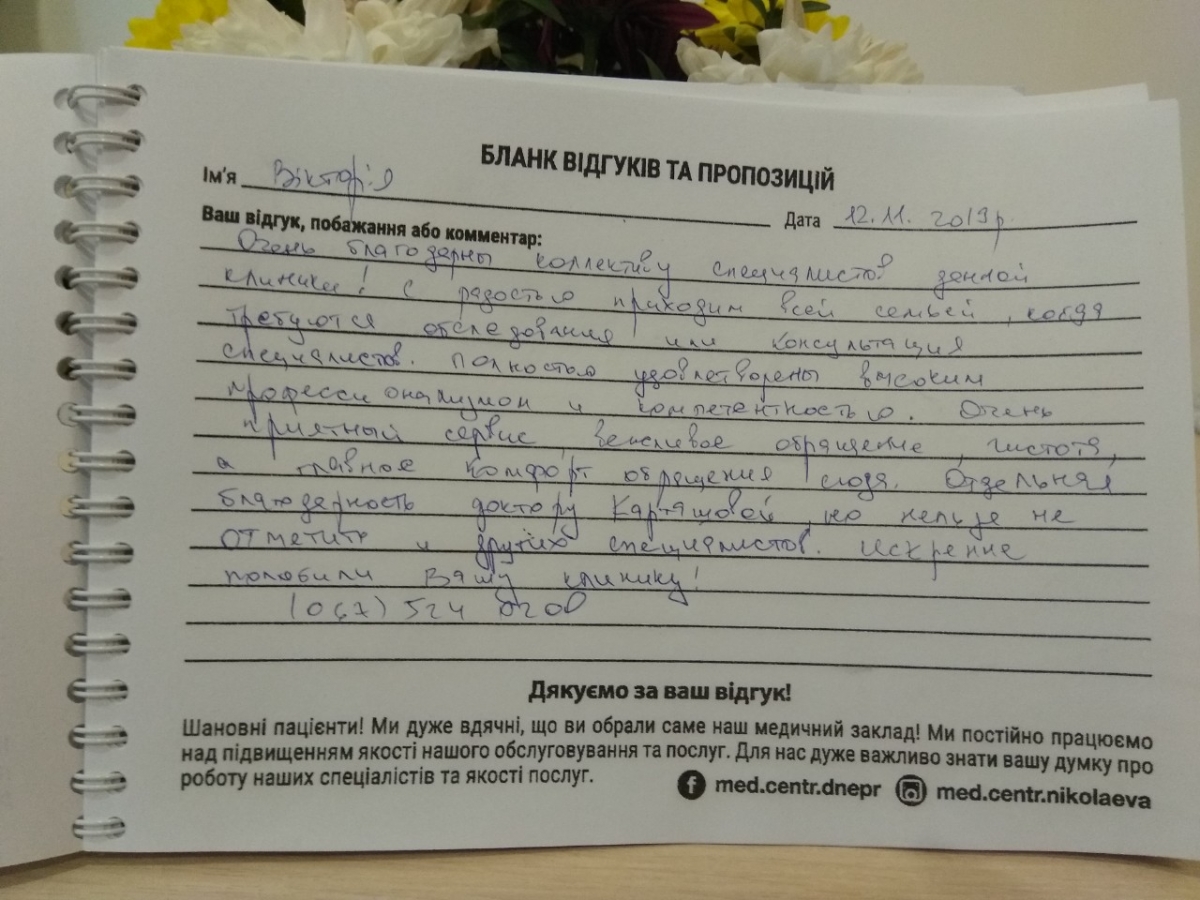 БЛАНК ВІДГУКІВ ТА ПРОПОЗИЦІЙ
Ім'я Вікторія
Дата 12.11.2019р.
Ваш відгук, побажання або коментар:
Очень благодарны коллективу специалистов данной
клиники! С радостью приходим всей семьей, когда
требуются обследования или консультация
специалистов. Полностью удовлетворены высоким
профессионализмом и компетентностью. Очень
приятный сервис, вежливое обращение, чистота,
а главное комфорт обращения сюда. Отдельная
благодарность доктору Карташовой, но нельзя не
отметить и других специалистов. Искренне
полюбили Вашу клинику!
(067) 524
Дякуємо за ваш відгук!
Шановні пацієнти! Ми дуже вдячні, що ви обрали саме наш медичний заклад! Ми постійно працюємо
над підвищенням якості нашого обслуговування та послуг. Для нас дуже важливо знати вашу думку про
роботу наших спеціалістів та якості послуг.
med.centr.dnepr med.centr.nikolaeva